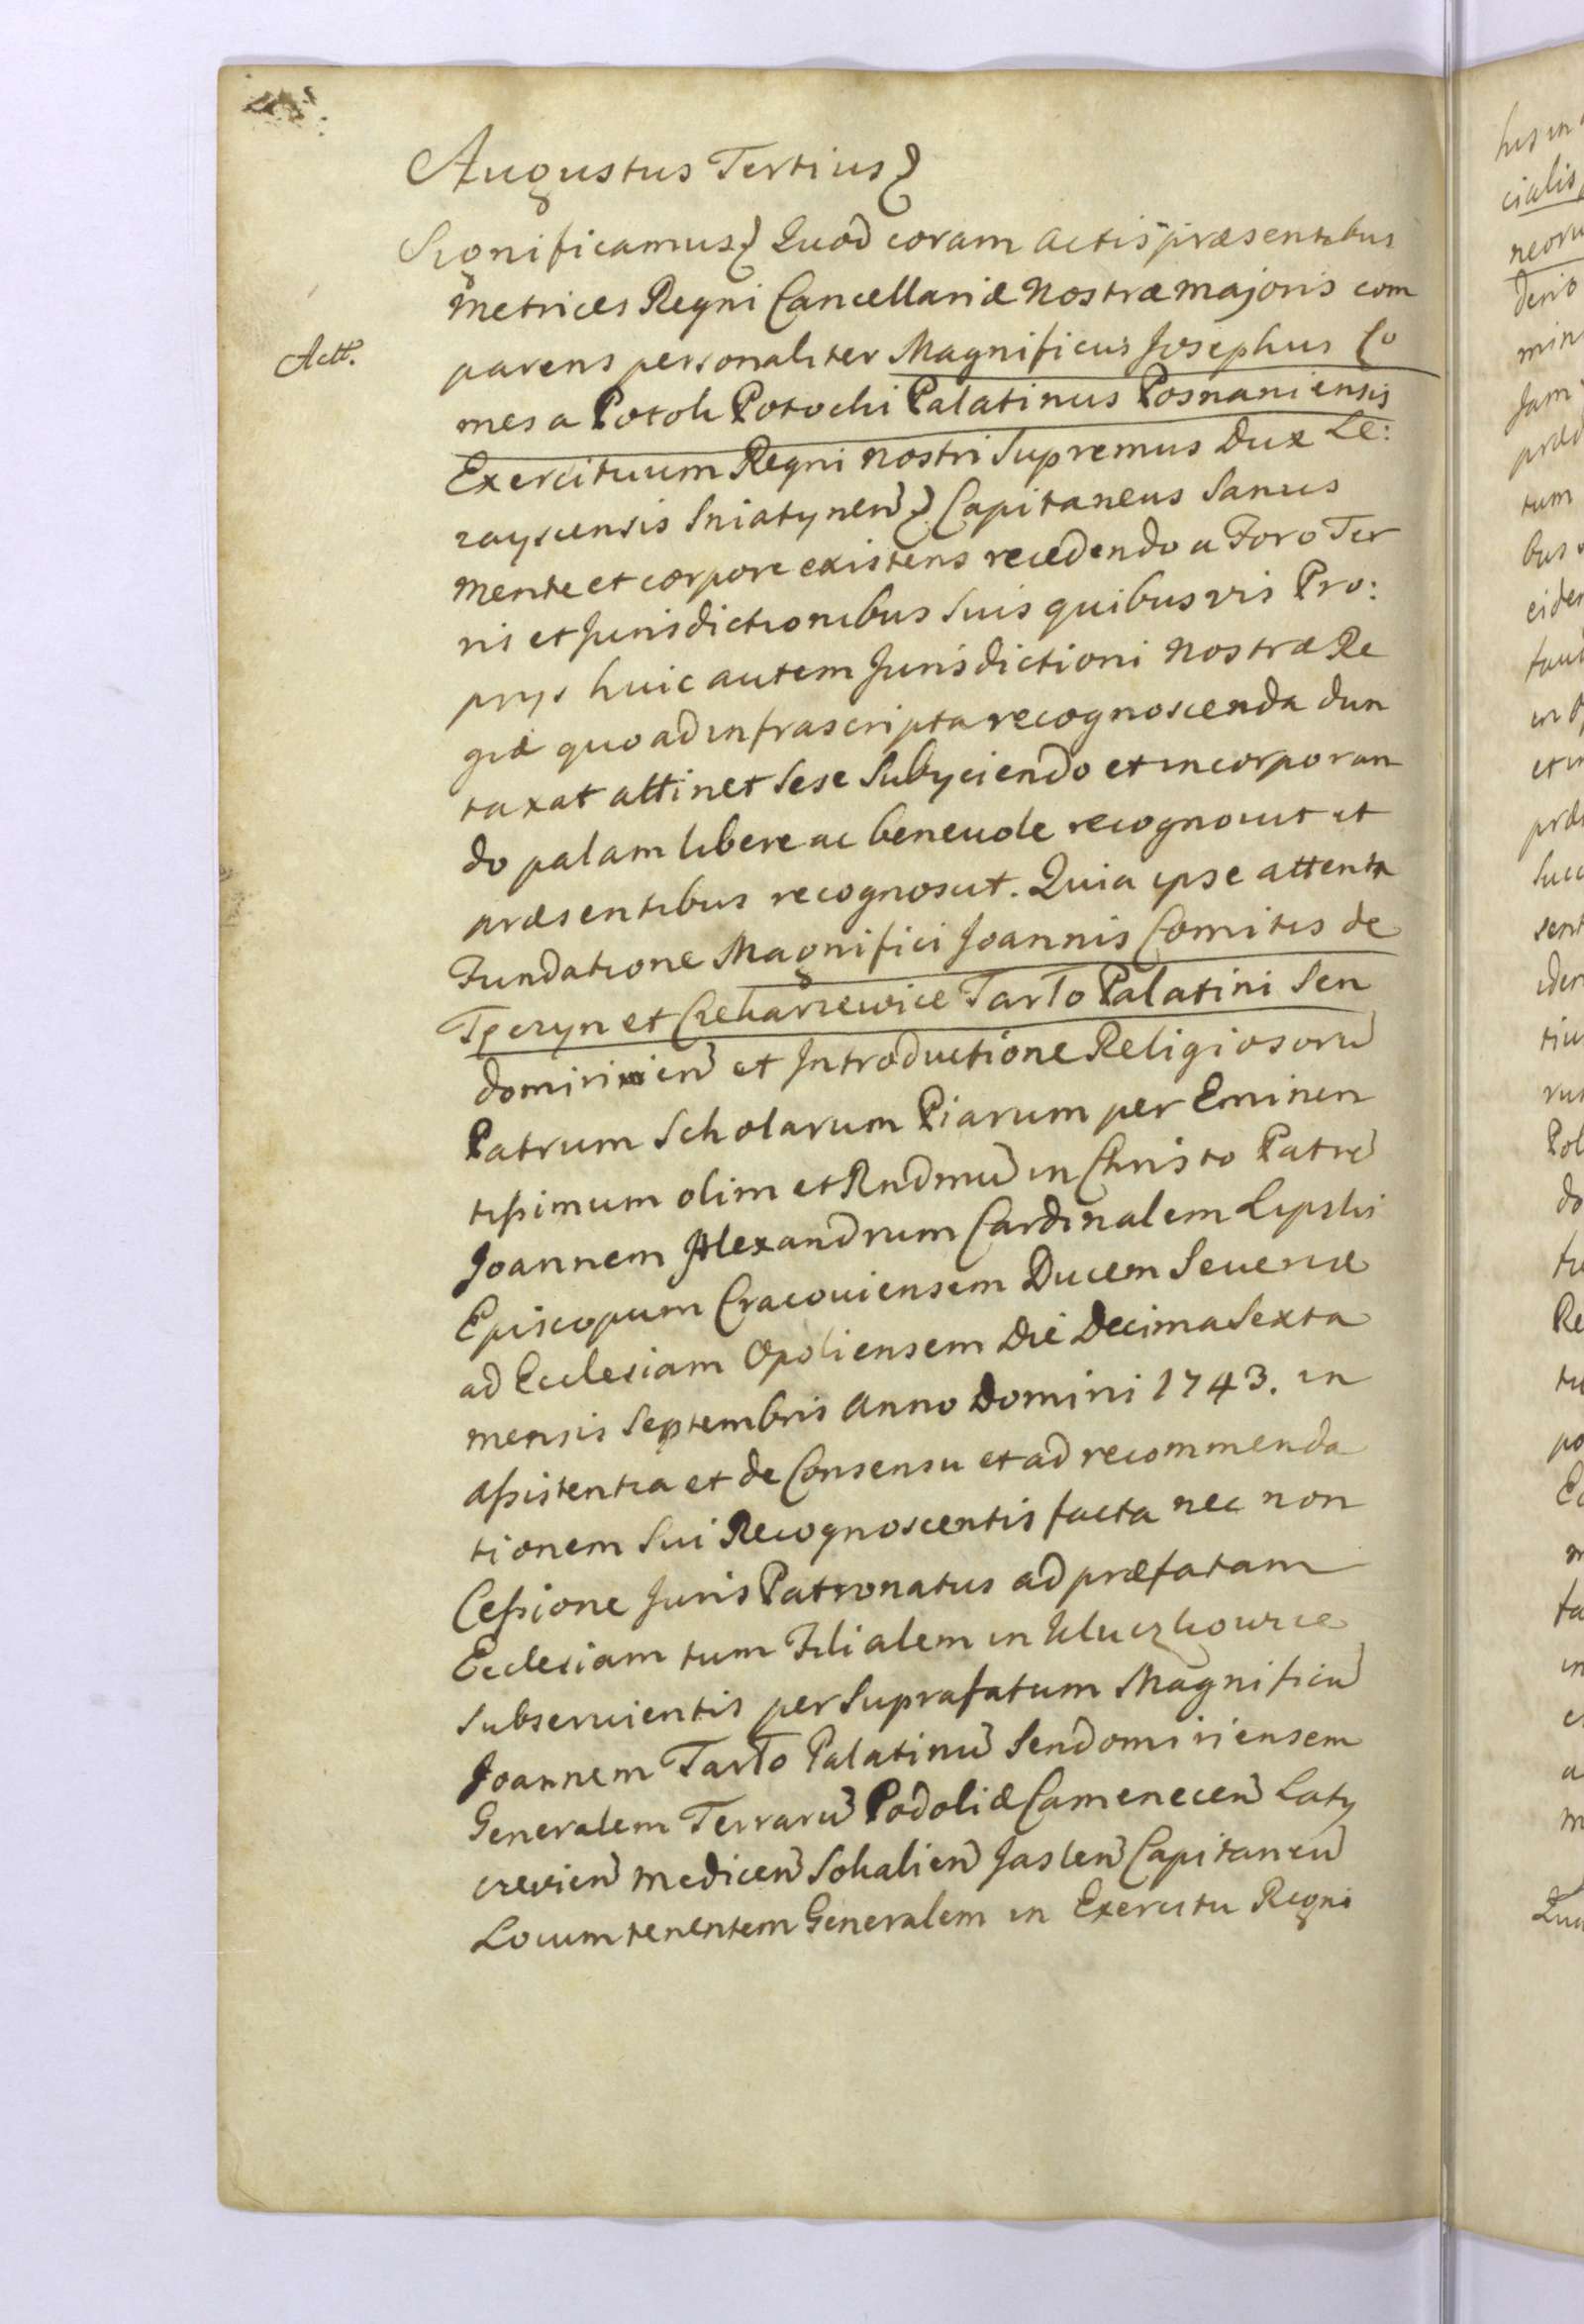 Augustus Tertius
Significamus Quod coram actis præsentibus
Metrices Regni Cancellariæ Nostræ majoris com
Actt.
parens personaliter Magnificus Josephus Co
mes a Potok Potocki Palatinus Posnaniensis
Exercituum Regni nostri Supremus Dux Le:
zayscensis Sniatynen Capitaneus Sanus
Mente et corpore existens recedendo a Foro Ter
ris et Jurisdictionibus Suis quibusvis Pro:
prys huic autem Jurisdictioni Nostræ Re
giæ quo ad infrascripta recognoscenda dun
taxat attinet Sese Subyciendo et incorporan
do palam libere ac beneuole recognouit et
præsentibus recognoscit. Quia ipse attenta
Fundatione Magnifici Joannis Comitis de
Teczyn et Czekarzewice Tarlo Palatini Sen
domirien et Introductione Religiosoru
Patrum Scholarum Piarum per Eminen
tissimum olim et Rndmu in Christo Patre
Joannem Alexandrum Cardinalem Lipski
Episcopum Cracouiensem Ducem Seueriæ
ad Ecclesiam Opoliensem Die Decima Sexta
mensis Septembris Anno Domini 1743. in
assistentia et de Consensu et ad recommenda
tionem Sui Recognoscentis facta nec non
Cessione Juris Patronatus ad præfatam
Ecclesiam tum Filialem in Kluczkowice
Subseruientis per Suprafatum Magnificu
Joannem Tarlo Palatinu Sendomiriensem
Generalem Terraru Podoliæ Camenecen Laty
czevien Medicen Sokalien Jaslen Capitaneu
Locumtenentem Generalem in Exercitu Regni